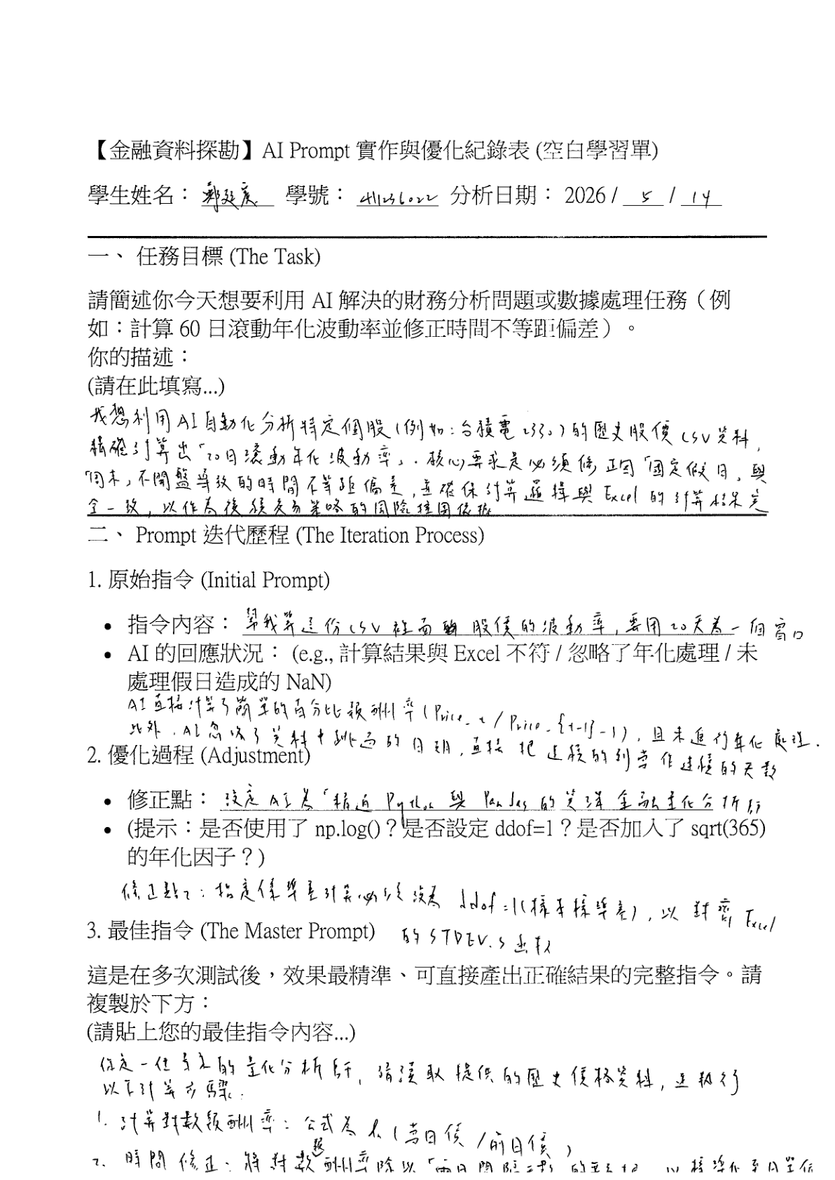 【金融資料探勘】AI Prompt 實作與優化紀錄表 (空白學習單)
學生姓名： 鄭廷宸 學號： 411236022 分析日期： 2026 / 5 / 14
一、 任務目標 (The Task)
請簡述你今天想要利用 AI 解決的財務分析問題或數據處理任務（例
如：計算 60 日滾動年化波動率並修正時間不等距偏差）。
你的描述：
(請在此填寫...)
我想利用AI自動化分析特定個股(例如:台積電2330)的歷史股價CSV資料,
精確計算出「20日滾動年化波動率」. 核心要求是必須修正因「國定假日」與
「週末」不開盤導致的時間不等距偏差, 並確保計算邏輯與Excel的計算結果完
全一致, 以作為後續交易策略的風險控管依據
二、 Prompt 迭代歷程 (The Iteration Process)
1. 原始指令 (Initial Prompt)
• 指令內容： 幫我算這份CSV裡面 股價的波動率, 要用20天為一個窗口
• AI 的回應狀況： (e.g., 計算結果與 Excel 不符 / 忽略了年化處理 / 未
處理假日造成的 NaN)
AI直接計算了簡單的百分比報酬率(Price_t / Price_{t-1} -1), 且未進行年化處理.
此外, AI忽略了資料中跳過的日期, 直接把連續的列當作連續的天數
2. 優化過程 (Adjustment)
• 修正點： 設定AI為「精通Python與Pandas的資深金融量化分析師
• (提示：是否使用了 np.log()？是否設定 ddof=1？是否加入了 sqrt(365)
的年化因子？)
修正點2: 指定標準差計算必須設為 ddof=1(樣本標準差), 以對齊Excel
的STDEV.S函數
3. 最佳指令 (The Master Prompt)
這是在多次測試後，效果最精準、可直接產出正確結果的完整指令。請
複製於下方：
(請貼上您的最佳指令內容...)
你是一位專業的量化分析師, 請讀取提供的歷史價格資料, 並執行
以下計算步驟:
1. 計算對數報酬率: 公式為 ln(當日價/前日價)
2. 時間修正: 將對數報酬率除以「兩日間隔天數」的平方根, 以標準化至日單位